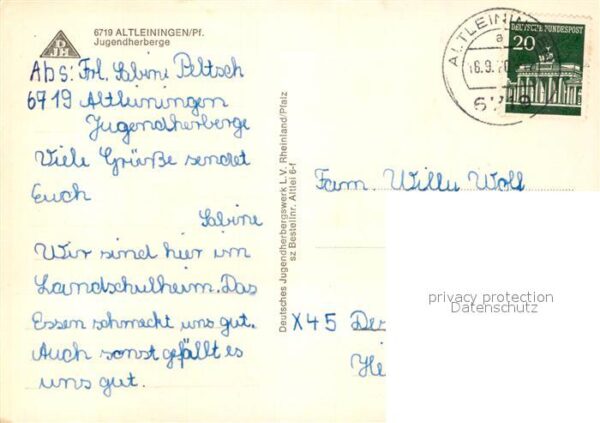 6719 ALTLEININGEN/Pf.
Jugendherberge
DJH
Abs: Frl. Sabine Peltsch
6719 Altleiningen
Jugendherberge
Viele Grüße sendet
Euch
Sabine
Wir sind hier im
Landschulheim. Das
Essen schmeckt uns gut.
Auch sonst gefällt es
uns gut.
Deutsches Jugendherbergswerk L.V. Rheinland/Pfalz
sz Bestellnr. Altlei 6-f
ALTLEININ
a
16.9.70
6719
DEUTSCHE BUNDESPOST
20
Fam. Willy Woll
X45
privacy protection
Datenschutz